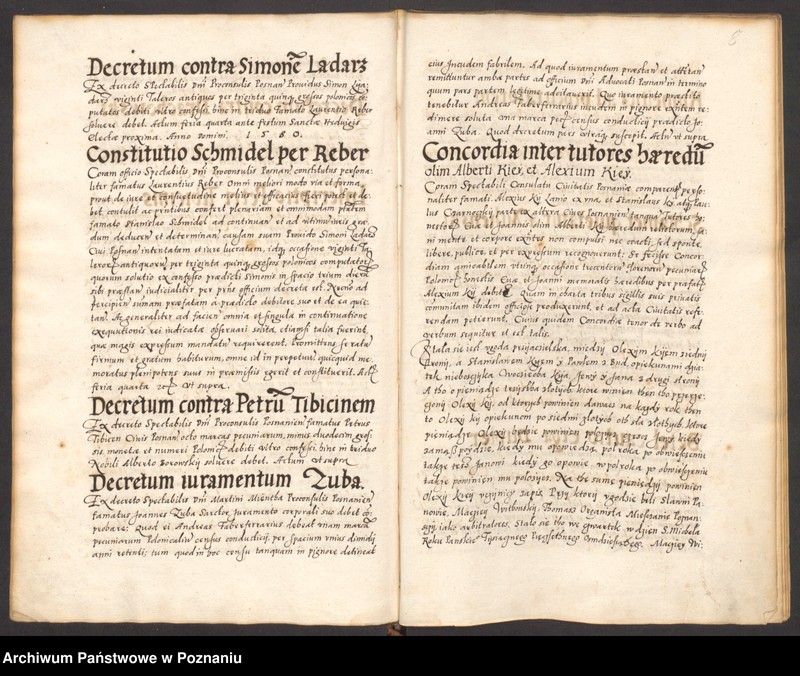 Decretum contra Simonē Ladarz
Ex decreto Spectabilis Dnī Proconsulis Posnan̄ Providus Simon
viginti Taleros antiquos per triginta quinq grossos polonicos
putatos debiti vltro confessi hinc in triduo Famato Laurentio Reber
solvere debet. Actum feria quarta ante festum Sanctæ Hedvigis
Electæ proxima. Anno Domini 1580.
Constitutio Schmidel per Reber
Coram officio Spectabilis Dnī Proconsulis Posnan̄ constitutus persona-
liter famatus Laurentius Reber Omni meliori modo via et forma
prout de iure et consuetudine melius et efficacius fieri potest et de-
bet contulit ac præsentibus confert plenariam et omnimodam ptātem
famato Stanislao Schmidel ad continuan̄ et ad vltimū iuris gra-
dum deducen̄ et determinan̄ causam suam Provido Simoni Ladarz
Civi Posnan̄ intentatam et iure lucratam, idq occasione viginti Ta
lerorū antiquorū per triginta quinq grossos polonicos computatorū
quorum solutio ex confesso prædicti Simonis in spacio trium dierū
sibi præstari iudicialiter per prīns officium decreta est. Necnō ad
percipien̄ sumam præfatam a prædicto debitore suo et de ea quie-
tan̄. Ac generaliter ad facien̄ omnia et singula in continuatione
exequutionis rei iudicatæ observari solita etiamsi talia fuerint,
quæ magis expressum mandatū requirerent. Promittens se ratū
firmum et gratum habiturum, omne id in perpetuū quicquid me-
moratus plenipotens suus in præmissis egerit et constituerit. Act
feria quarta vt supra.
Decretum contra Petrū Tibicinem
Ex decreto Spectabilis Dnī Proconsulis Posnanien̄ famatus Petrus
Tibicen Civis Posnan̄ octo marcas pecuniarum, minus duodecim gros-
sis monetæ et numeri Polonici debiti vltro confessi hinc in triduo
Nobili Alberto Boronskij solvere debet. Actum vt supra
Decretum iuramentum Zuba.
Ex decreto Spectabilis Dnī Martini Proconsulis Posnanien̄
famatus Joannes Zuba Sartor, iuramento corporali suo debet cō-
probare: Quod ei Andreas Taberferrarius debeat vnam marcā
pecuniarum Polonicaliū census conducticij, per spacium vnius dimidij
anni retenti; tum quod in hoc censu tanquam in pignore detineat
5
eius Incudem fabrilem. Ad quod iuramentum præstan̄ et attētan̄
remittuntur ambæ partes ad officium Dnī Advocati Posnan̄ in termino
quum pars partem legitime adcitaverit. Quo iuramento præstito
tenebitur Andreas Taberferrarius incudem in pignore existen̄ re-
dimere soluta vna marca census conducticij prædicto Jo-
anni Zuba. Quod decretum pars vtraq suscepit. Actū vt supra
Concordia inter tutores hæredū
olim Alberti Kiey, et Alexium Kiey.
Coram Spectabili Consulatu Civitatis Posnaniæ comparens perso-
naliter famati Alexius Kij Lanio ex vna, et Stanislaus Kij
Czarnoskij parte ex altera Cives Posnanien̄ tanquā Tutores ho-
nestorū Evæ et Joannis olim Alberti Kij hæredum relictorum, sa-
ni mente et corpore existen̄ non compulsi nec coacti, sed sponte,
libere, publice et per expressum recognoverunt: Se fecisse Concor-
diam amicabilem vtrinq occasione trecentorū florenorū pecuniarū
Polonorū honestis Evæ et Joanni memoratis hæredibus per præfatū
Alexium Kij debitorū. Quam in charta tribus sigillis suis privatis
comunitam ibidem officiose produxerunt, et ad acta Civitatis refe-
rendam petierunt. Cuius quidem Concordiæ tenor de verbo ad
verbum sequitur et est talis.
Stała się iest zgoda przyiacielska, miedzy Olexym Kijem z iednij
stronij, a Stanislawem Kyem y Pawlem z Bud opiekunami dzia-
tek nieboszczyka Woczciecha Kija, Jewy y Jana z drugi stronij
A tho o pieniądze trzijstha zlotych, ktore winien then tho przerze-
czonij Olexij Kij, od ktorych powinien dawacz na kazdy rok then
to Olexij Kij opiekunom po siedmi zlotych oth sta zlothych, ktore
pieniądze Olexij będzie powinien Jewy kiedy
zamąsz pojdzie, kiedy mu opowiedzą pol roka po obwiesczeniu
takze tesz Janowi kiedy go opowie w pol roka po obwiesczeniu
takze powinien mu polozycz. Na the summe pieniedzij powinien
Olexij Kiey vczijnicz zapis. Przy ktorij vgodzie bili Slawni Pa-
nowie, Maciey Witkowskij, Thomasz Organista Miesczanie Poznan-
scij iako arbitratores. Stalo sie tho we czwartek w dzien S. Michala
Roku Panskiego Tysiącznego Pięczsetnego Osmdziesiątego. Maciey Wi-
Archiwum Państwowe w Poznaniu